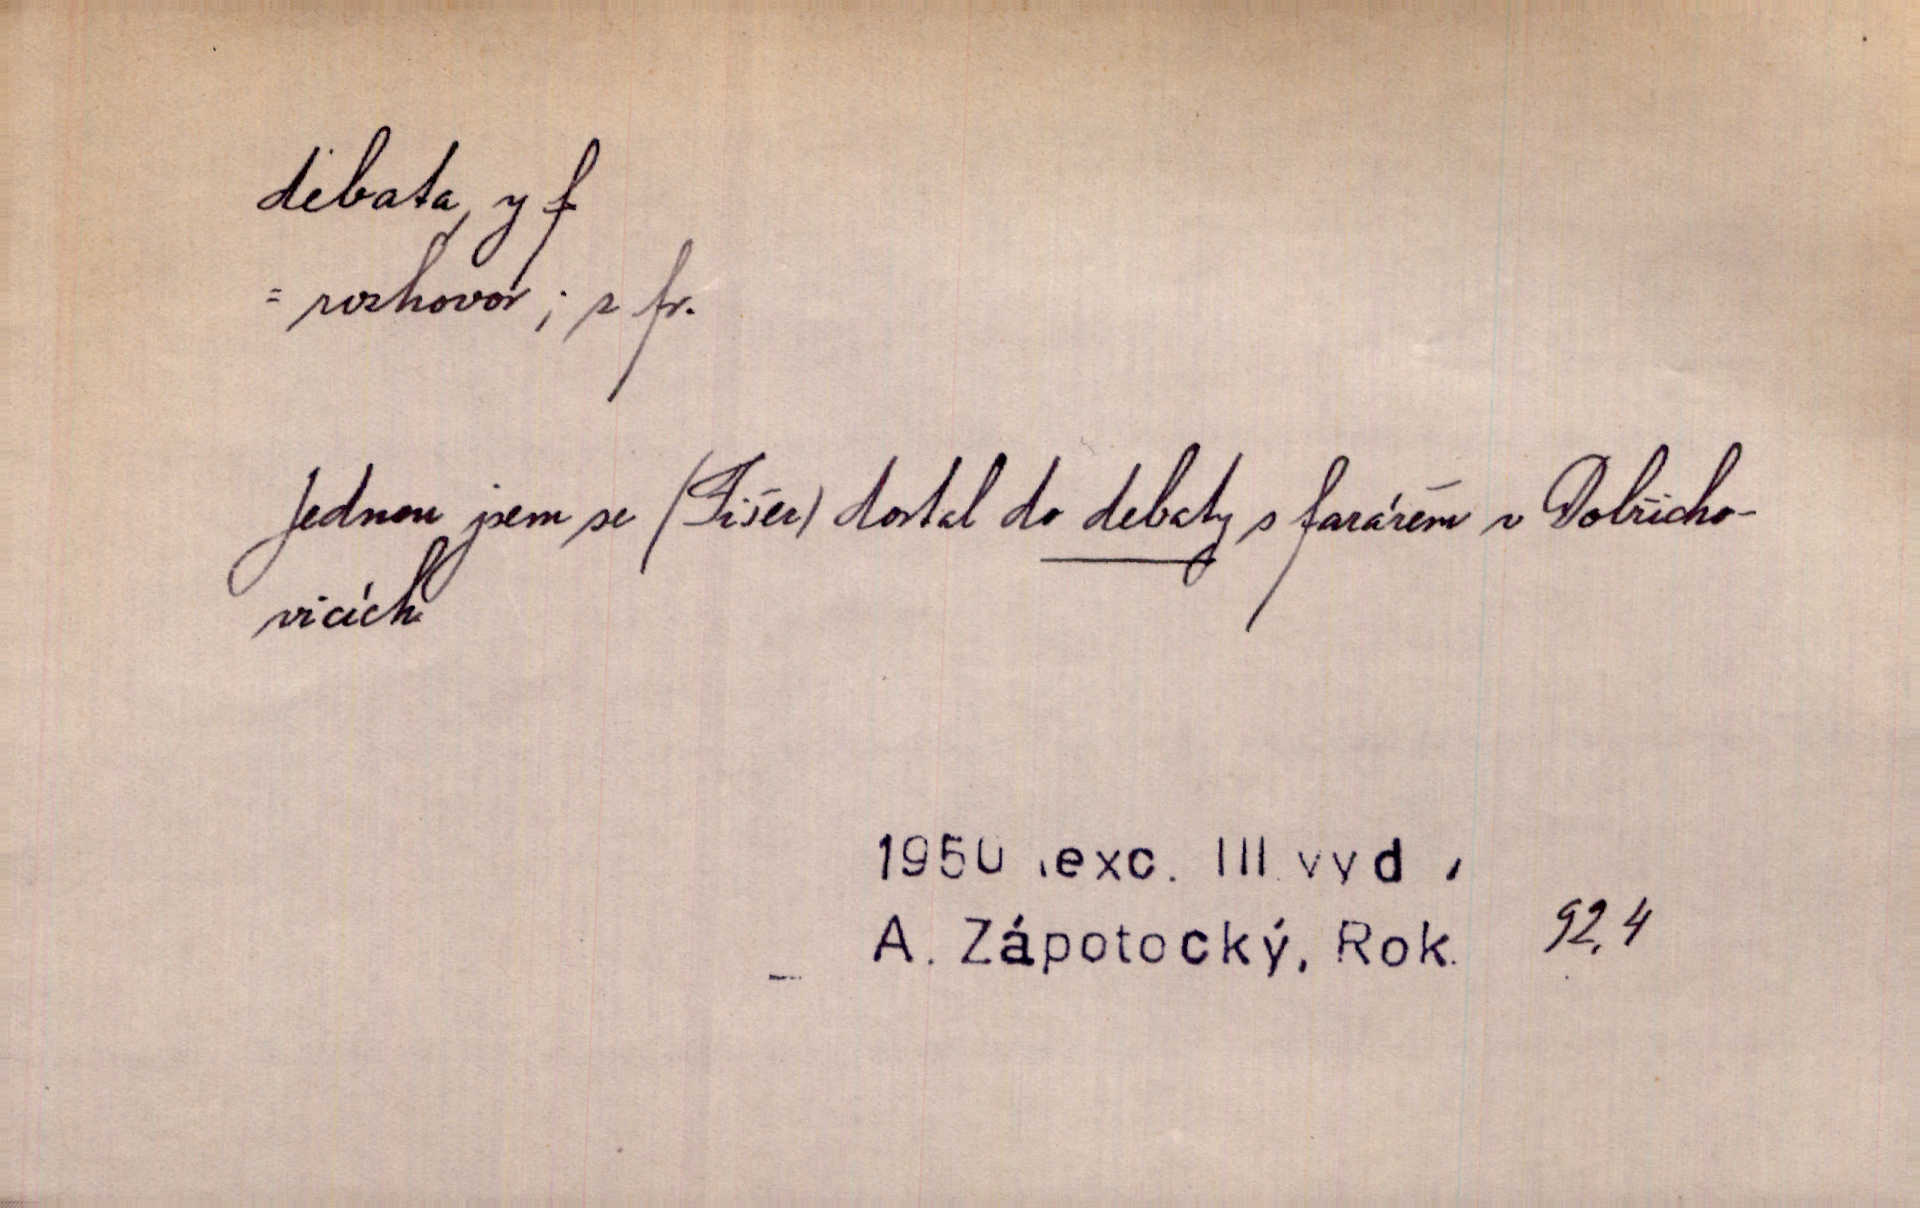 debata, y f
= rozhovor ; z fr.
Jednou jsem se (Fišer) dostal do debaty s farářem v Dobřicho-
vicích
1950 .exc. III. vyd.
A. Zápotocký, Rok. 92,4